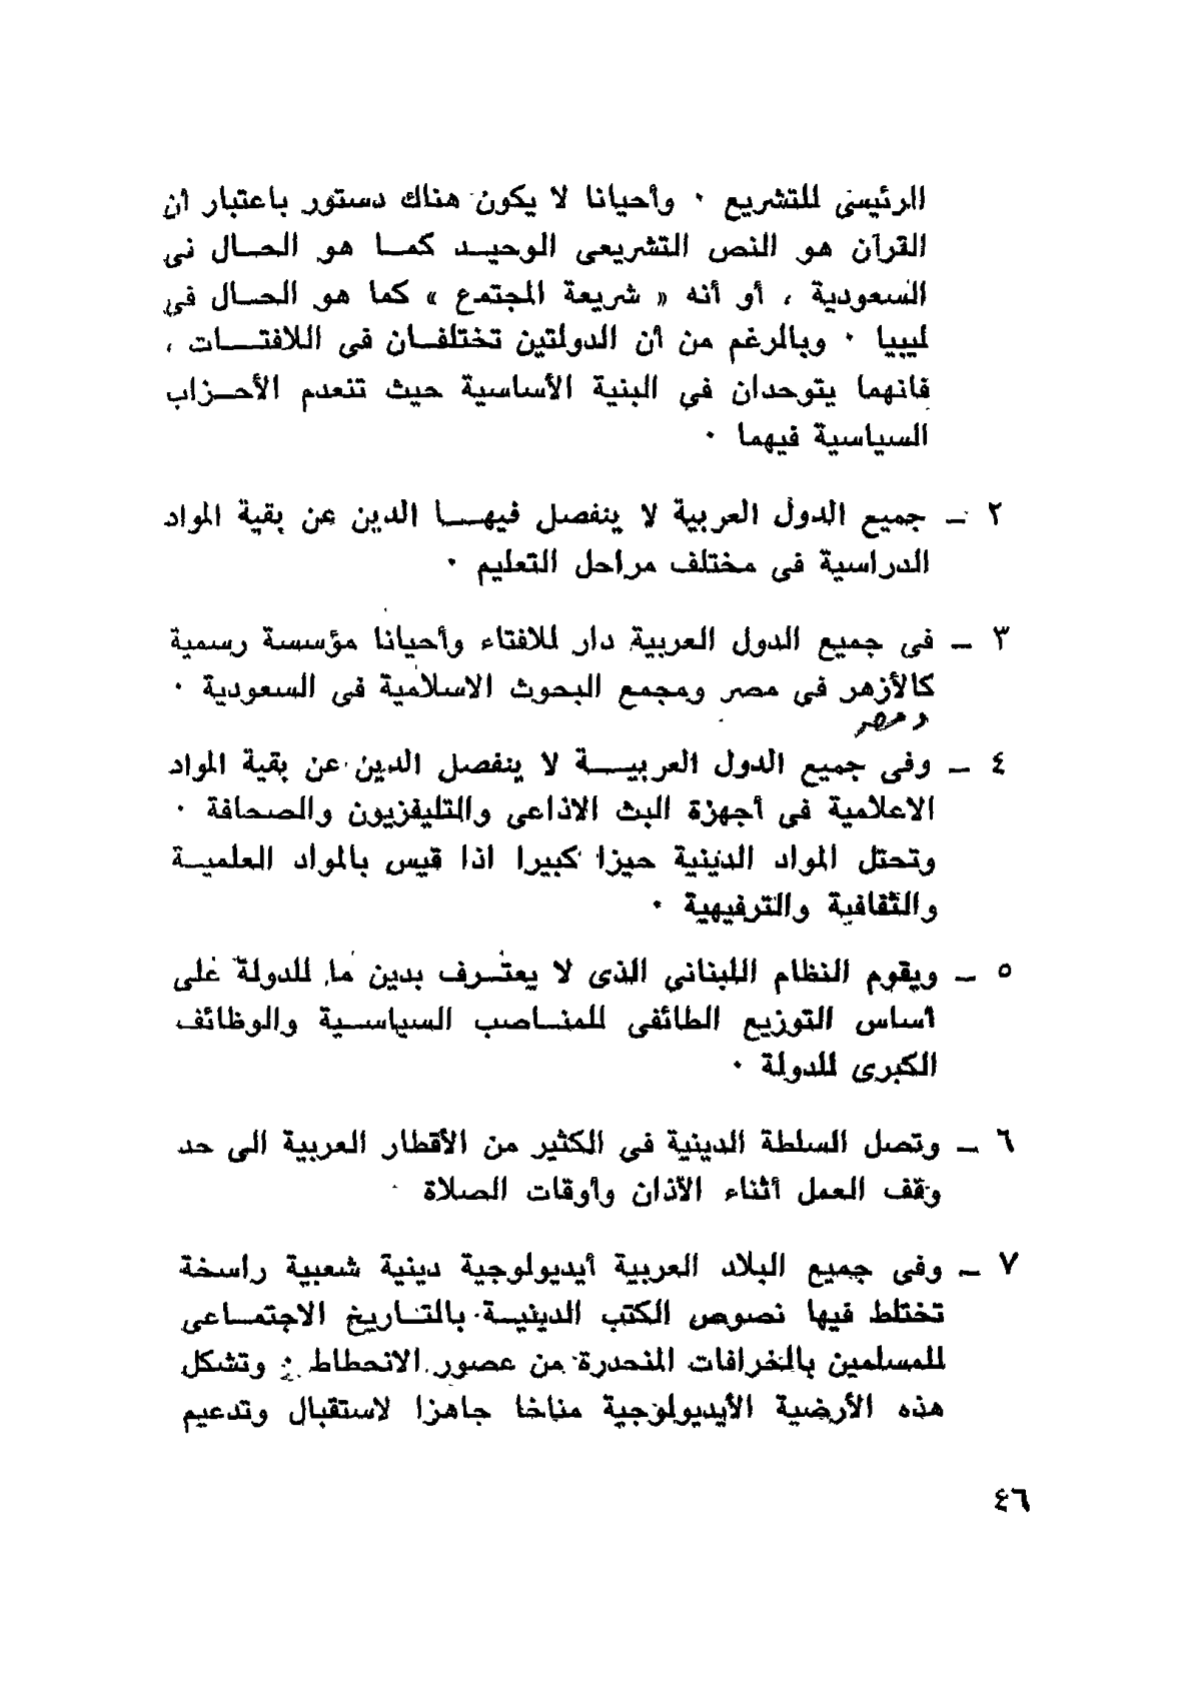 الرئيسى للتشريع ٠ وأحيانا لا يكون هناك دستور باعتبار أن
القرآن هو النص التشريعى الوحيد كما هو الحال فى
السعودية ، أو أنه « شريعة المجتمع » كما هو الحال في
ليبيا ٠ وبالرغم من أن الدولتين تختلفان فى اللافتات ،
فانهما يتوحدان في البنية الأساسية حيث تنعدم الأحزاب
السياسية فيهما ٠
٢ ـ جميع الدول العربية لا ينفصل فيها الدين عن بقية المواد
الدراسية فى مختلف مراحل التعليم ٠
٣ ـ فى جميع الدول العربية دار للافتاء وأحيانا مؤسسة رسمية
كالأزهر فى مصر ومجمع البحوث الاسلامية فى السعودية ٠
ومصر
٤ ـ وفى جميع الدول العربية لا ينفصل الدين عن بقية المواد
الاعلامية فى أجهزة البث الاذاعى والتليفزيون والصحافة ٠
وتحتل المواد الدينية حيزا كبيرا اذا قيس بالمواد العلمية
والثقافية والترفيهية ٠
٥ ـ ويقوم النظام اللبناني الذى لا يعترف بدين ما للدولة على
أساس التوزيع الطائفى للمناصب السياسية والوظائف
الكبرى للدولة ٠
٦ ـ وتصل السلطة الدينية فى الكثير من الأقطار العربية الى حد
وقف العمل أثناء الأذان وأوقات الصلاة ٠
٧ ـ وفى جميع البلاد العربية أيديولوجية دينية شعبية راسخة
تختلط فيها نصوص الكتب الدينية بالتاريخ الاجتماعى
للمسلمين بالخرافات المنحدرة من عصور الانحطاط ٠ وتشكل
هذه الأرضية الأيديولوجية مناخا جاهزا لاستقبال وتدعيم
٤٦